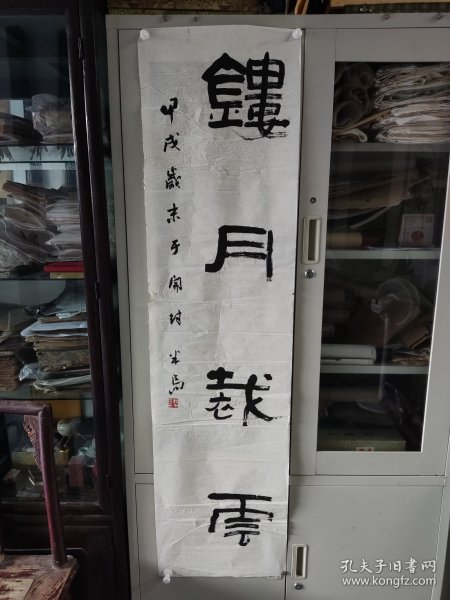 鏤月裁雲
甲戌歲末于開封 米鳥
孔夫子旧书网
www.kongfz.com